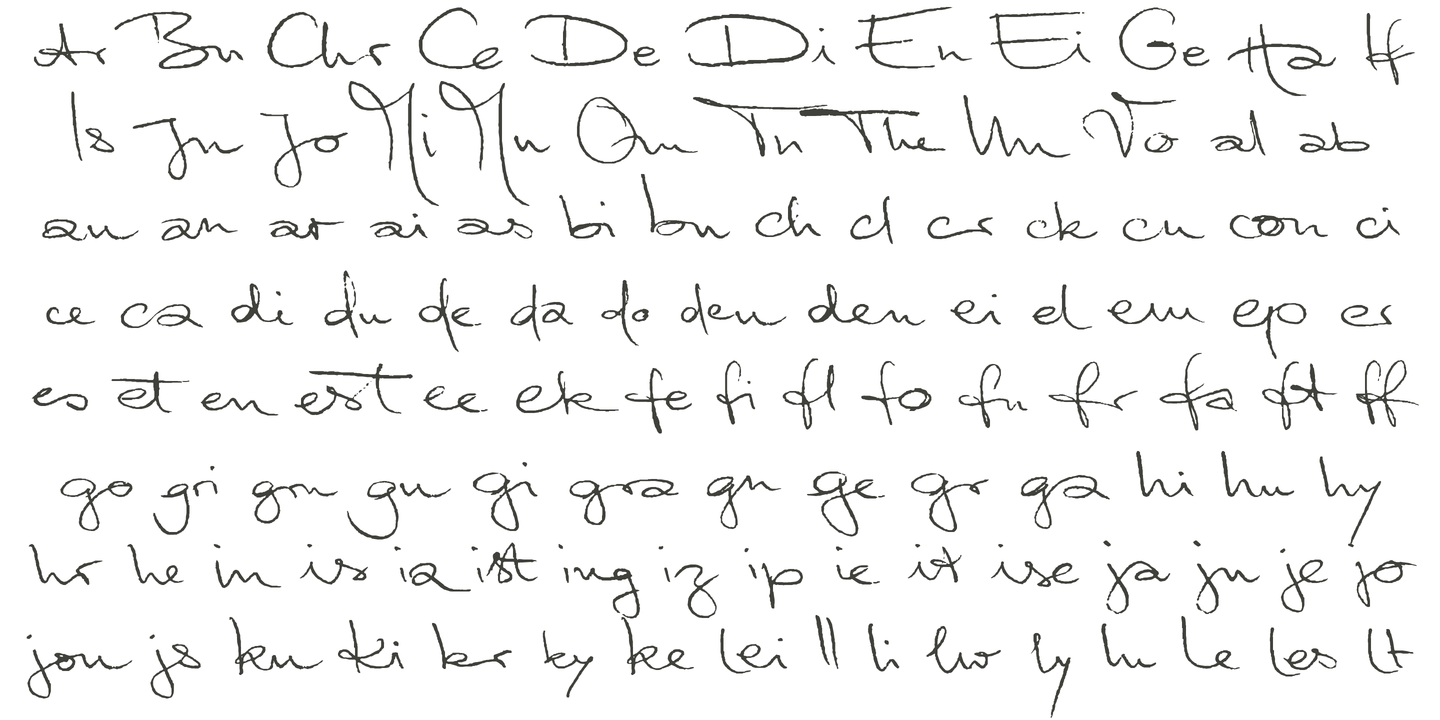 Ar Bu Chr Ce De Di En Ei Ge Ha If
Is Ju Jo Mi Mu Qu Tu The Un Vo al ab
au an ar ai as bi bu ch cl cr ck cu con ci
ce ca di du de da do den den ei el em ep er
es et en est ee ek fe fi fl fo fu fr fa ft ff
go gri gm gu gi gra gn ge gr ga hi hu hy
hr he in is ia ist ing iz ip ie it ise ja ju je jo
jou js ku ki kr ky ke lei ll li lo ly lu le les lt